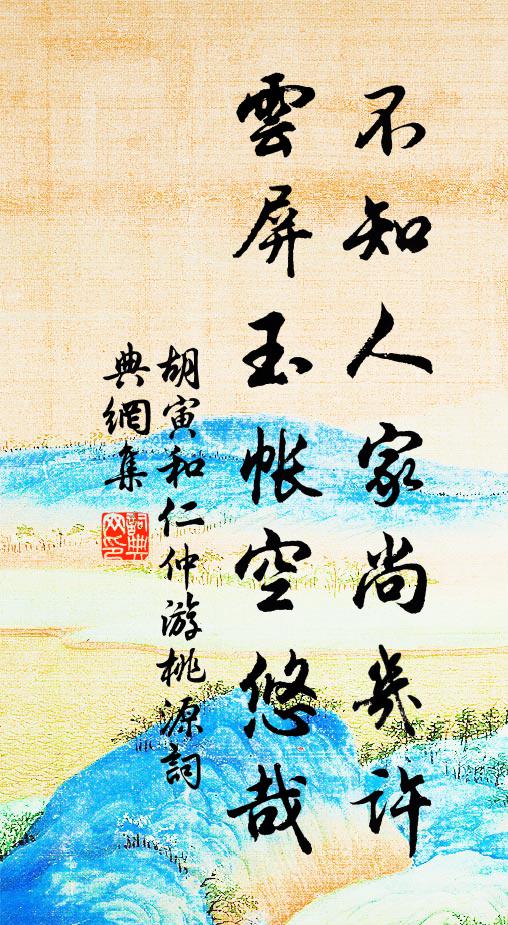 不知人家尚幾許
雲屏玉帳空悠哉
胡寅和仁仲游桃源詞
典網集